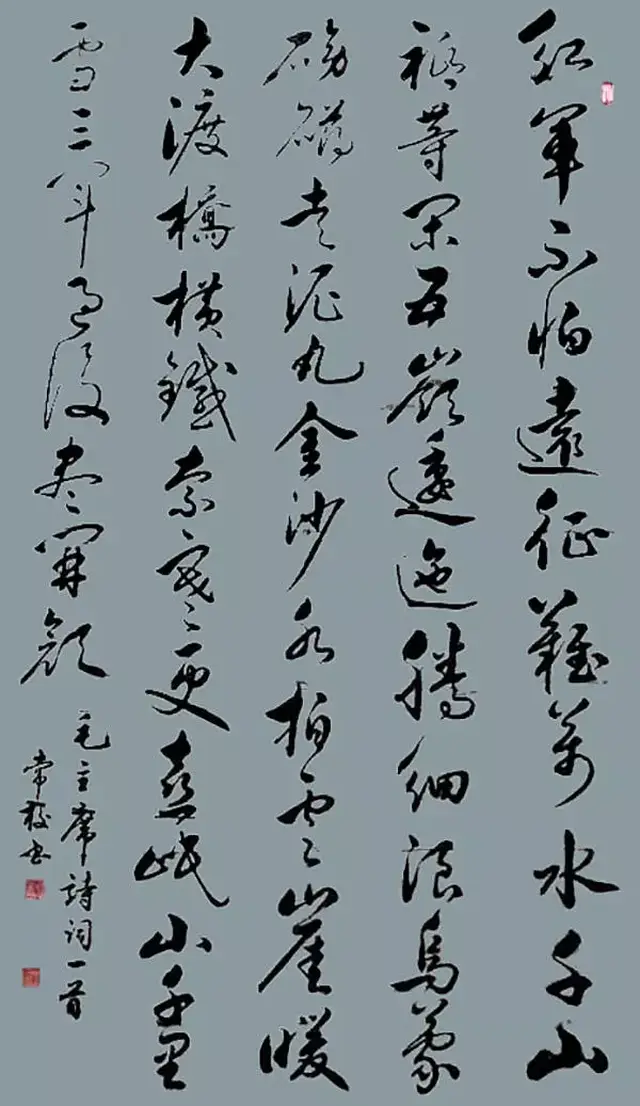 紅軍不怕遠征難萬水千山
祇等閑五嶺逶迤騰細浪烏蒙
磅礴走泥丸金沙水拍雲崖暖
大渡橋横鐵索寒更喜岷山千里
雪三軍過後盡開顔
毛主席詩詞一首
常 书